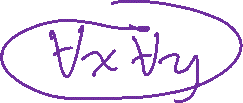 ∀x ∀y